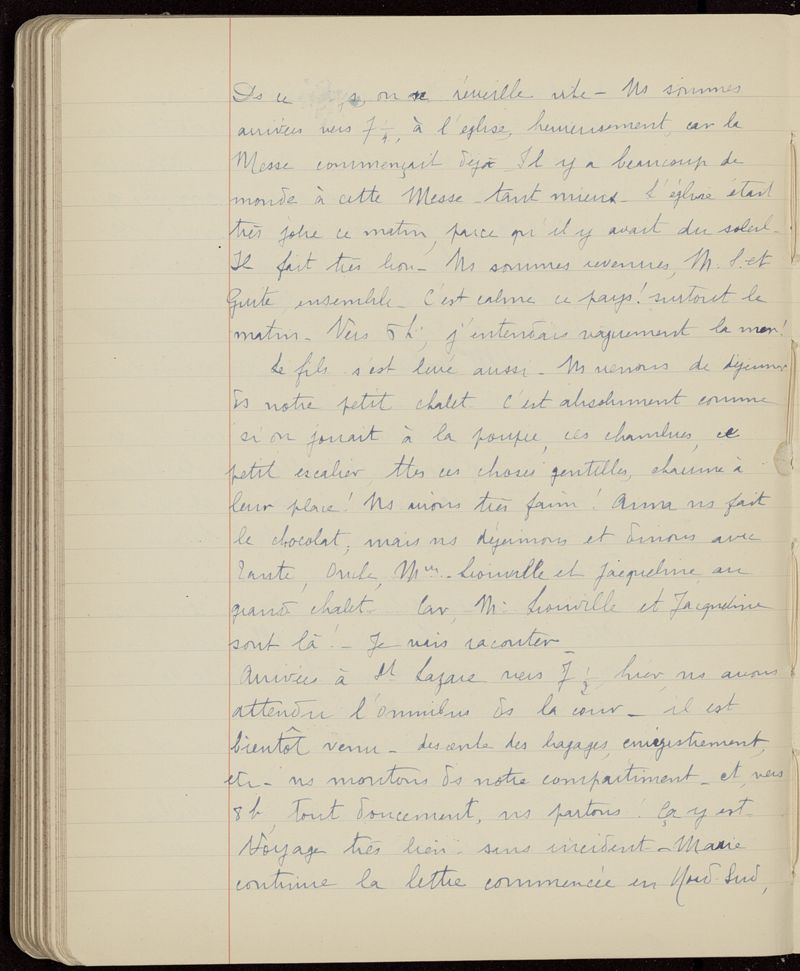 Ds ce pays, on se réveille vite - Ns sommes
arrivées vers 7 1/4, à l'église, heureusement, car la
Messe commençait déjà Il y a beaucoup de
monde à cette Messe - tant mieux - L'église était
très jolie ce matin, parce qu'il y avait du soleil -
Il fait très bon - Ns sommes revenues, M. S. et
Guite, ensemble - C'est calme ce pays! surtout le
matin - Vers 5h, j'entendais vaguement la mer!
Le fils s'est levé aussi - Ns venons de déjeuner
ds notre petit chalet C'est absolument comme
si on jouait à la poupée, ces chambres, ce
petit escalier, ttes ces choses gentilles, chacune à
leur place! Ns avions très faim! Anna ns fait
le chocolat, mais ns déjeunons et dînons avec
Tante, Oncle, Mme Liouville et Jacqueline au
grand chalet - Car, Me Liouville et Jacqueline
sont là! - Je vais raconter -
Arrivées à St Lazare vers 7 1/2, hier, ns avons
attendu l'omnibus ds la cour - il est
bientôt venu - descente des bagages, enregistrement,
etc - ns montons ds notre compartiment - et, vers
8h, tout doucement, ns partons! Ça y est -
Voyage très bien - sans incident - Marie
continue la lettre commencée en Nord-Sud,